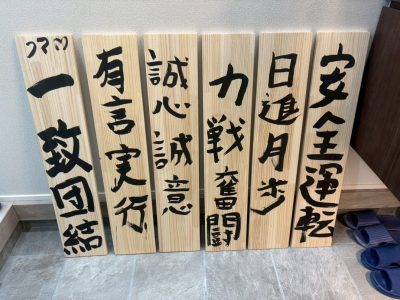 安全運転
日進月歩
力戦奮闘
誠心誠意
有言実行
一致団結